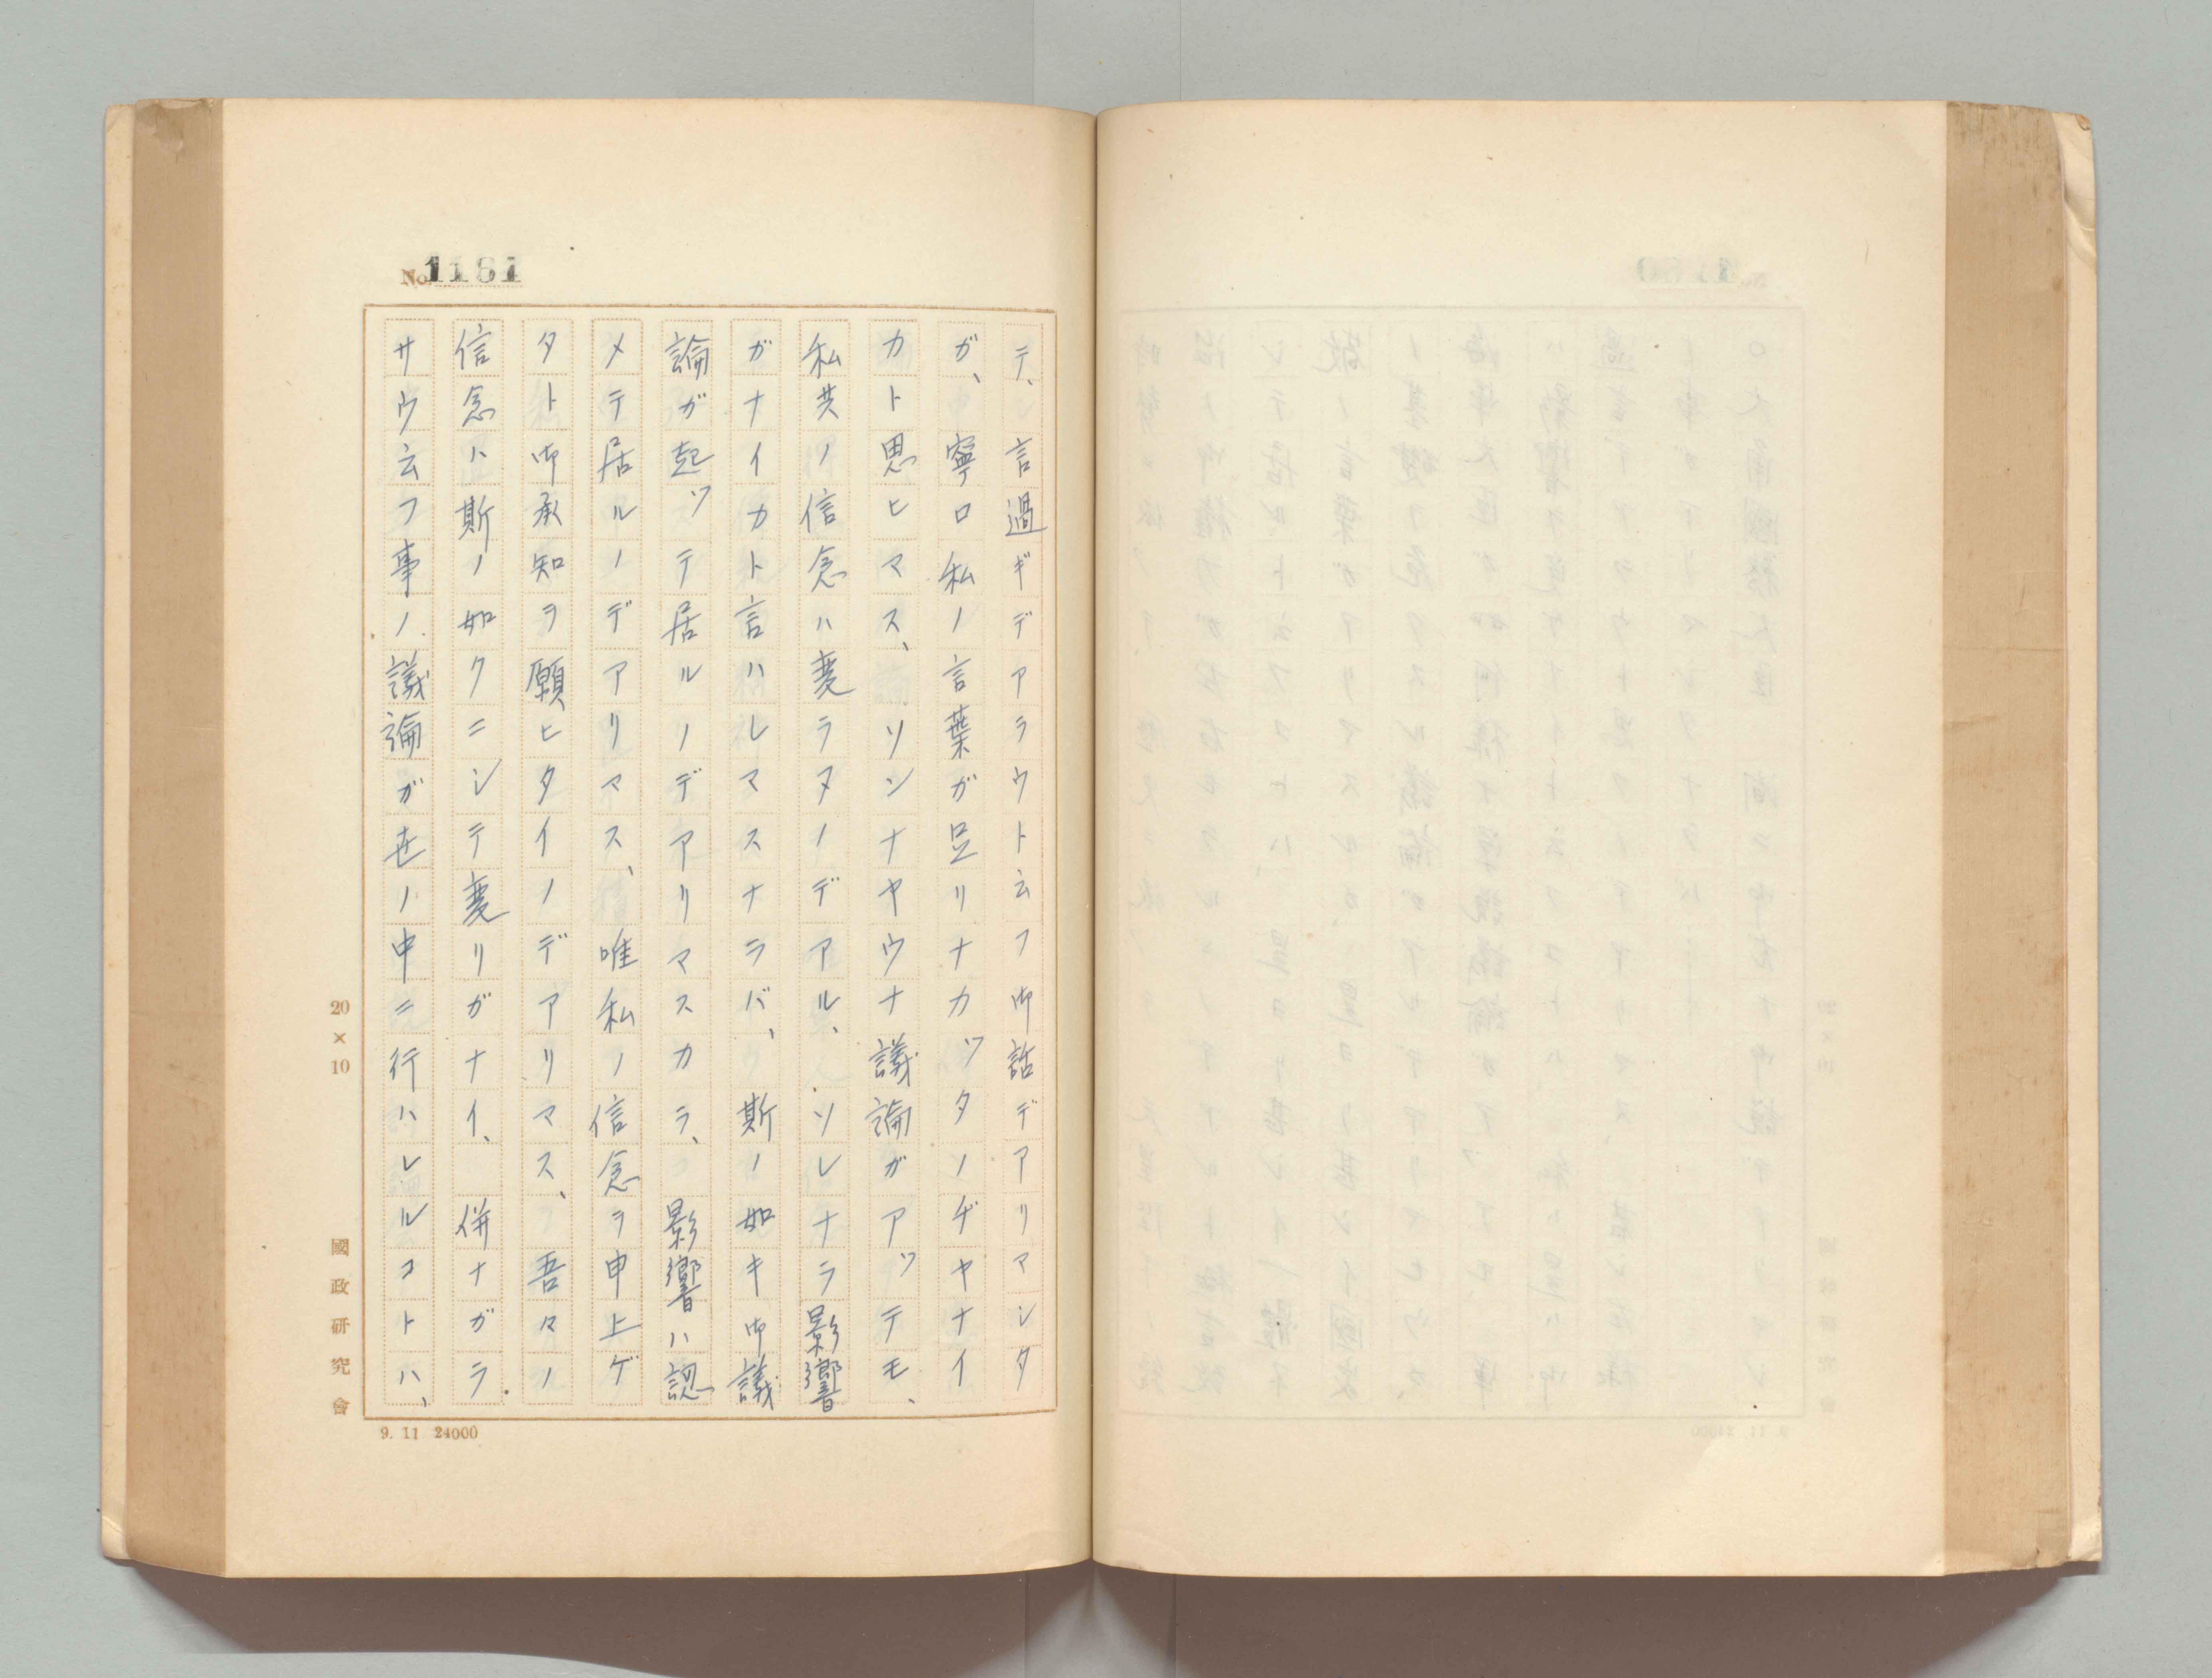 No. 1181
テ、言過ギデアラウト云フ御話デアリマシタ
ガ、寧ロ私ノ言葉ガ足リナカツタノヂヤナイ
カト思ヒマス、ソンナヤウナ議論ガアツテモ、
私共ノ信念ハ変ラヌノデアル、ソレナラ影響
ガナイカト言ハレマスナラバ、斯ノ如キ御議
論ガ起ツテ居ルノデアリマスカラ、影響ハ認
メテ居ルノデアリマス、唯私ノ信念ヲ申上ゲ
タト御承知ヲ願ヒタイノデアリマス、吾々ノ
信念ハ斯ノ如クニシテ変リガナイ、併ナガラ
サウ云フ事ノ議論ガ世ノ中ニ行ハレルコトハ、
20×10
國政研究會
9. 11 24000